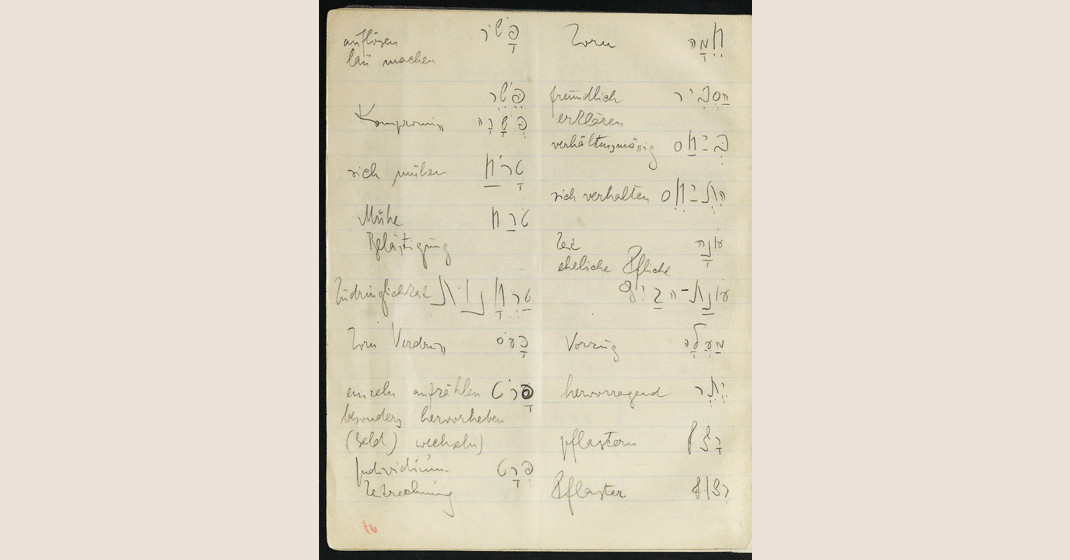 חֵמָה Zorn
הַסְבִּיר freundlich
erklären
בְּיַחַס verhältnismässig
הִתְיַחֵס sich verhalten
עוֹנָה Zeit
eheliche Pflicht
עוֹנַת
מַעֲלָה Vorzug
יֶתֶר hervorragend
רָצֹף pflastern
רְצוּף Pflaster
פָּשֹׁר auflösen
lau machen
פשר
פְּשָׁרָה Kompromiss
טָרֹחַ sich mühen
טֹרַח Mühe
Belästigung
טַרְחָנוּת Zudringlichkeit
כָּעֹס Zorn Verdruss
פָּרֹט einzeln aufzählen
besonders hervorheben
(Geld) wechseln)
פְּרָט Individuum
Zeitrechnung